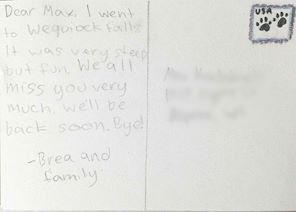 Dear Max, I went
to Wequiock falls
It was very steep
but fun. We all
miss you very
much. we'll be
back soon. Bye!
-Brea and
family
USA